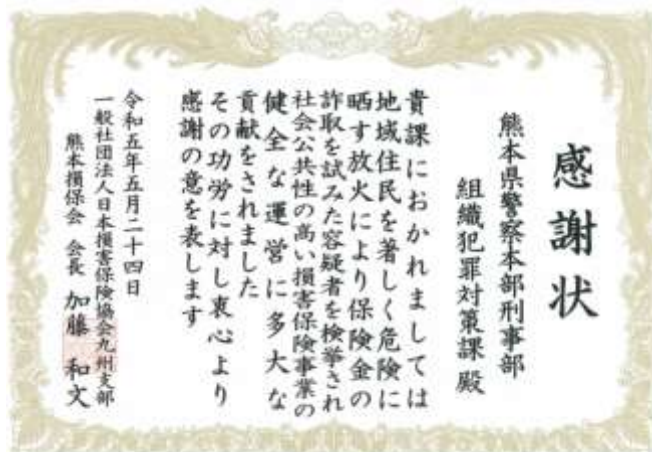 感謝状
熊本県警察本部刑事部
組織犯罪対策課殿
貴課におかれましては
地域住民を著しく危険に
晒す放火により保険金の
詐取を試みた容疑者を検挙され
社会公共性の高い損害保険事業の
健全な運営に多大な
貢献をされました
その功労に対し衷心より
感謝の意を表します
令和五年五月二十四日
一般社団法人日本損害保険協会九州支部
熊本損保会 会長 加藤 和文